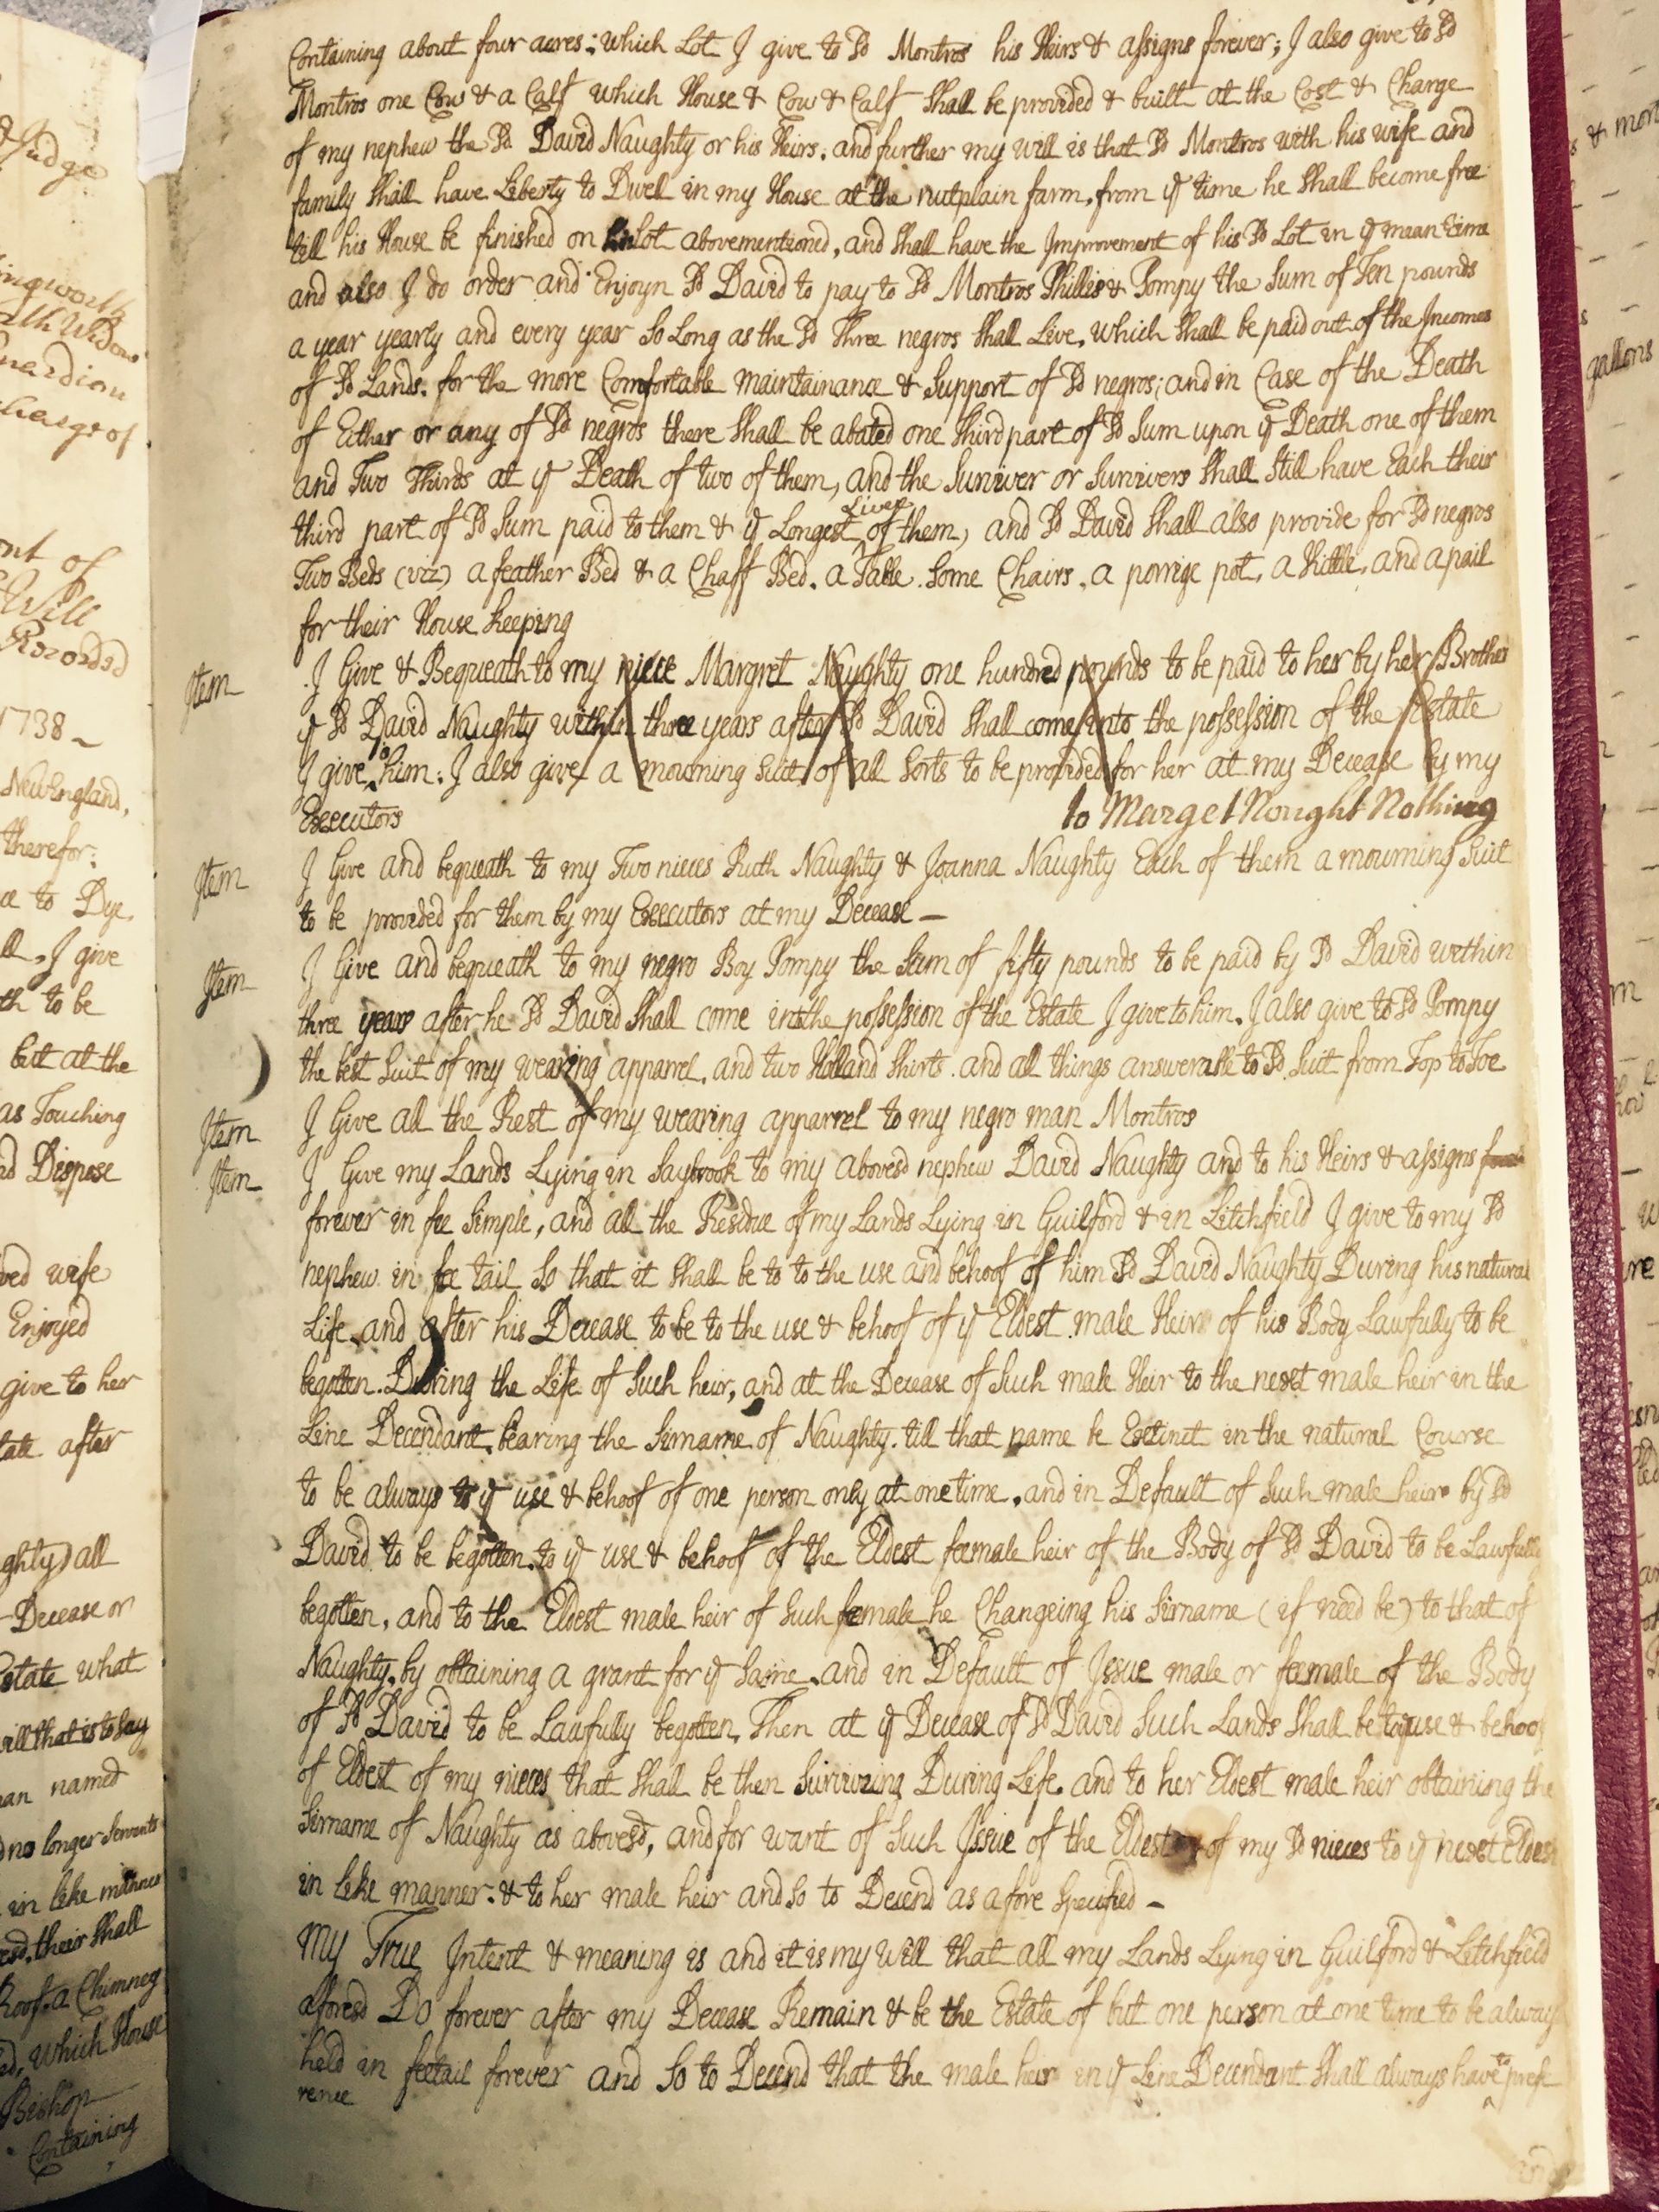 Containing about four acres: which Lot I give to Sd Montros his Heirs & assigns forever; I also give to Sd
Montros one Cow & a Calf which House & Cow & Calf Shall be provided & built at the Cost & Charge
of my nephew the Sd David Naughty or his Heirs. and further my will is that Sd Montros with his wife and
family Shall have Liberty to Dwell in my House at the nutplain farm, from ye time he Shall become free
till his House be finished on his Lot abovementioned, and Shall have the Improvement of his Sd Lot in ye mean time
and also I do order and Enjoyn Sd David to pay to Sd Montros Phillis & Pompy the Sum of Ten pounds
a year yearly and every year So Long as the Sd Three negros Shall Live, which Shall be paid out of the Incomes
of Sd Lands. for the more Comfortable maintainance & Support of Sd negros; and in Case of the Death
of Either or any of Sd negros there Shall be abated one third part of Sd Sum upon ye Death one of them
and Two Thirds at ye Death of two of them, and the Surviver or Survivers Shall Still have Each their
third part of Sd Sum paid to them & ye Longest Liver of them, and Sd David Shall also provide for Sd negros
Two Beds (viz) a feather Bed & a Chaff Bed. a Table. Some Chairs. a porrige pot, a Kittle, and a pail
for their House keeping
Item I Give & Bequeath to my niece Margret Naughty one hundred pounds to be paid to her by her Brother
ye Sd David Naughty within three years after Sd David Shall come into the possession of the Estate
I give to him: I also give a mourning Suit of all Sorts to be provided for her at my Decease by my
Executors to Marget Nought Nothing
Item I Give and bequeath to my Two nieces Ruth Naughty & Joanna Naughty Each of them a mourning Suit
to be provided for them by my Executors at my Decease —
Item I Give and bequeath to my negro Boy Pompy the Sum of fifty pounds to be paid by Sd David within
three years after he Sd David Shall come into the possession of the Estate I give to him. I also give to Sd Pompy
the best Suit of my wearing apparrel, and two Holland Shirts. and all things answerable to Sd Suit from Top to Toe
Item I Give all the Rest of my wearing apparrel to my negro man Montros
Item I Give my Lands Lying in Saybrook to my abovesd nephew David Naughty and to his Heirs & assigns
forever in fee Simple, and all the Resdue of my Lands Lying in Guilford & in Litchfield I give to my Sd
nephew in fee tail So that it Shall be to to the use and behoof of him Sd David Naughty During his natural
Life and after his Decease to be to the use & behoof of ye Eldest male Heir of his Body Lawfully to be
begotten. During the Life of Such heir, and at the Decease of Such male Heir to the next male heir in the
Line Decendant, bearing the Sirname of Naughty. till that name be Extinct in the natural Course
to be always to ye use & behoof of one person only at one time, and in Default of Such male heirs by Sd
David to be begotten, to ye use & behoof of the Eldest feemale heir of the Body of Sd David to be Lawfully
begotten, and to the Eldest male heir of Such female he Changeing his Sirname (if need be) to that of
Naughty, by obtaining a grant for ye Same, and in Default of Issue male or feemale of the Body
of Sd David to be Lawfully begotten, Then at ye Decease of Sd David Such Lands Shall be to ye use & behoof
of Eldest of my nieces that Shall be then Surviving During Life, and to her Eldest male heir obtaining the
Sirname of Naughty as abovesd, and for want of Such Issue of the Eldest of my Sd nieces to ye next Eldest
in like manner: & to her male heir and So to Decend as afore Specified —
My True Intent & meaning is and it is my Will that all my Lands Lying in Guilford & Litchfield
aforesd Do forever after my Decease Remain & be the Estate of but one person at one time to be always
held in feetail forever and So to Decend that the male heir in ye Line Decendant Shall always have the prefe
rence